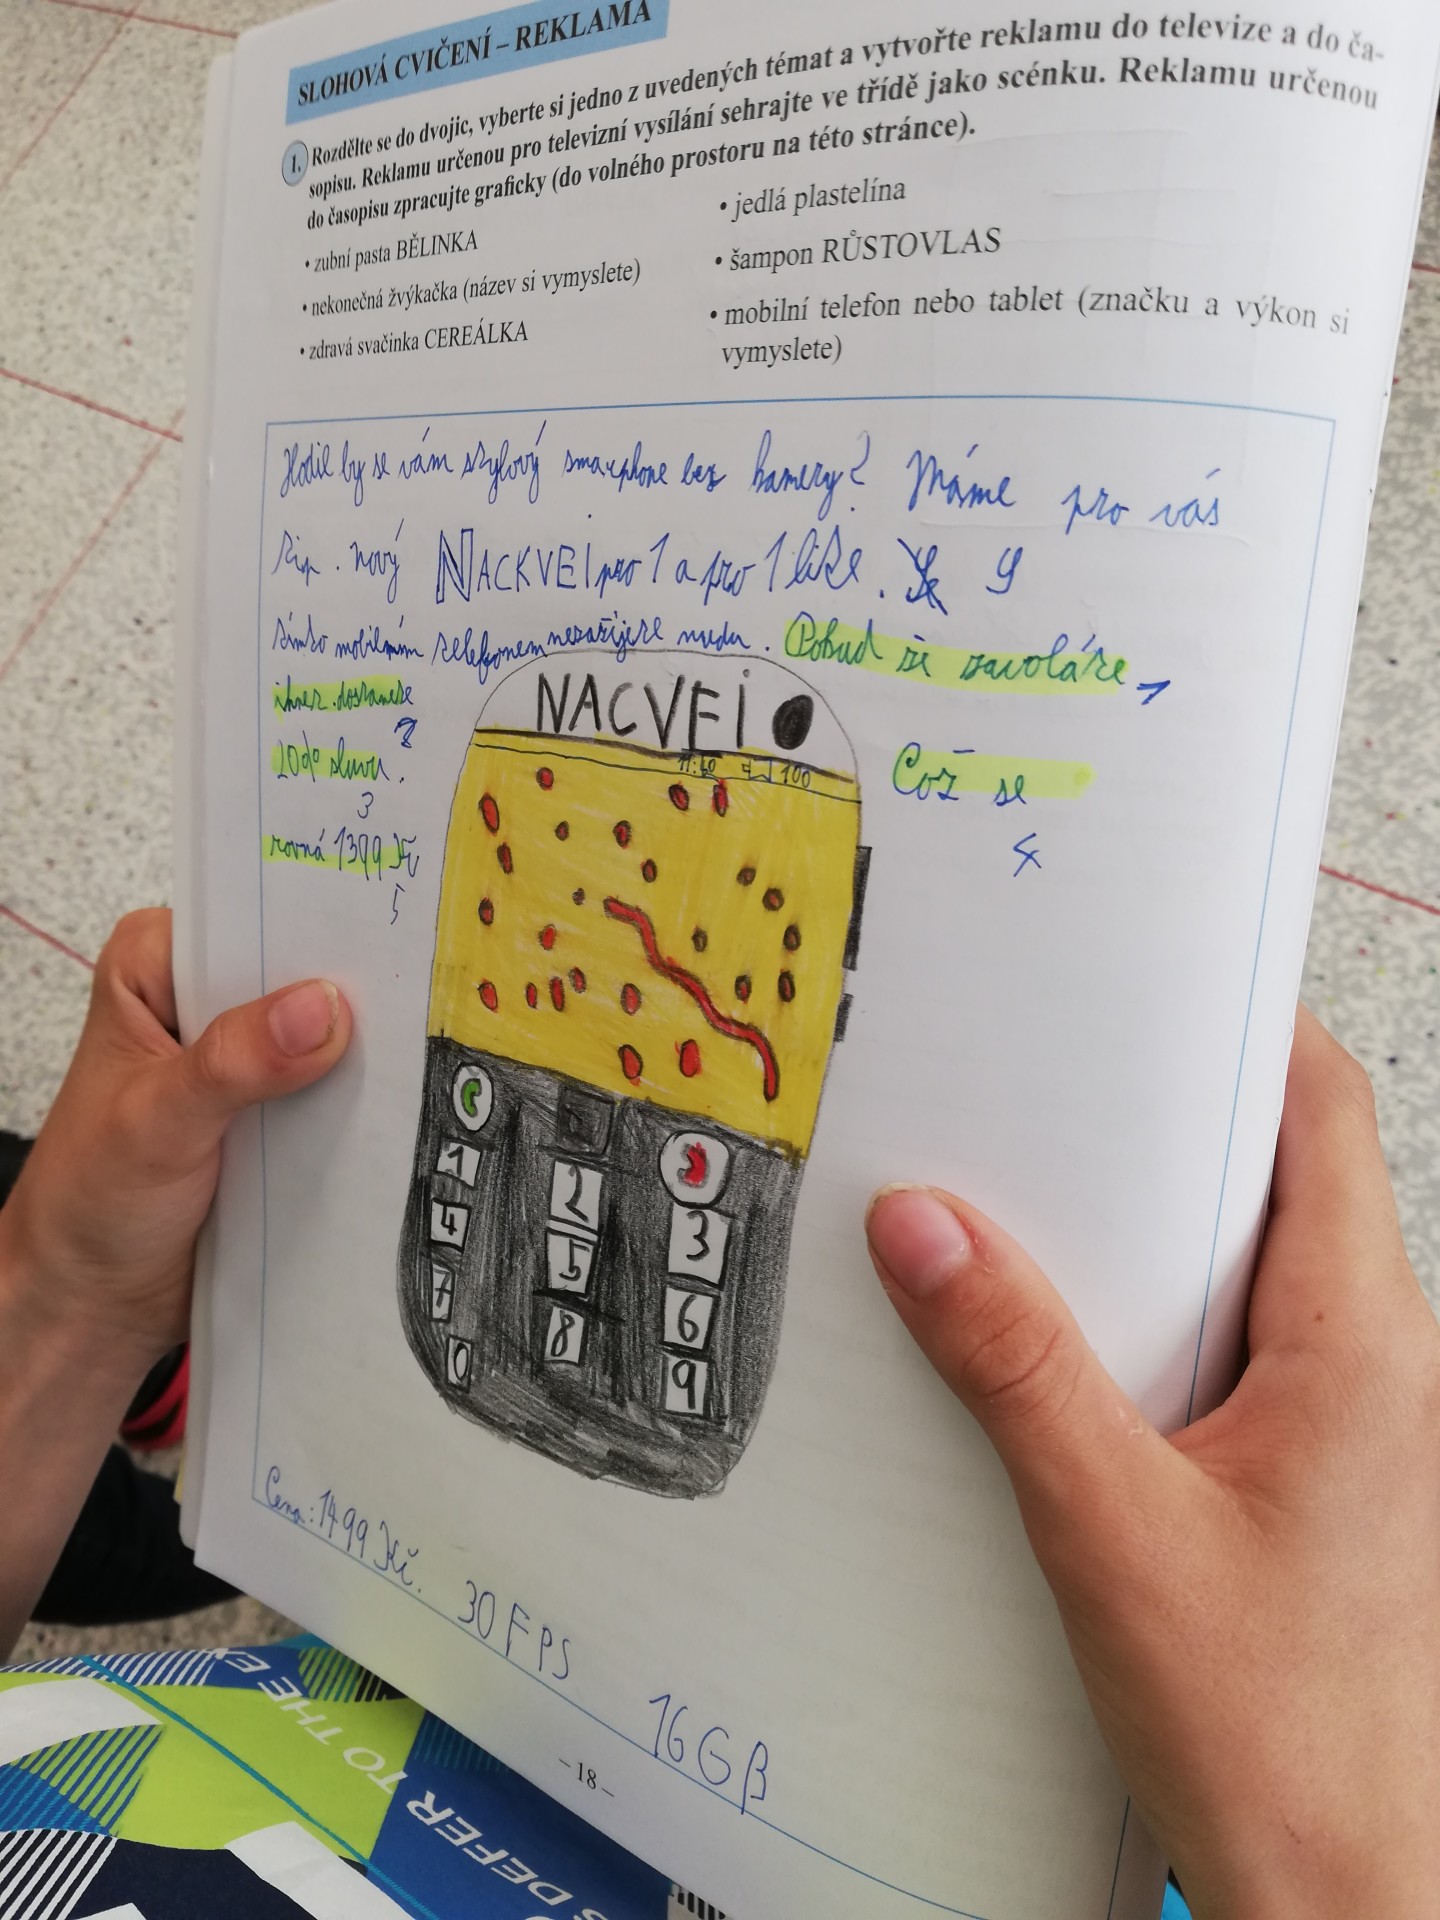 SLOHOVÁ CVIČENÍ – REKLAMA
1. Rozdělte se do dvojic, vyberte si jedno z uvedených témat a vytvořte reklamu do televize a do ča-
sopisu. Reklamu určenou pro televizní vysílání sehrajte ve třídě jako scénku. Reklamu určenou
do časopisu zpracujte graficky (do volného prostoru na této stránce).
• zubní pasta BĚLINKA
• nekonečná žvýkačka (název si vymyslete)
• zdravá svačinka CEREÁLKA
• jedlá plastelína
• šampon RŮSTOVLAS
• mobilní telefon nebo tablet (značku a výkon si
vymyslete)
Hodil by se vám stylový smartphone bez kamery? Máme pro vás
tip. nový NACKVEI pro 1 a pro 1 like. S
tímto mobilním telefonem nezažijete nudu. Pokud teď zavoláte, 1
ihned dostanete
2
20% slevu.
3
Což se
4
rovná 1399 Kč
5
NACVEI
11:60 100
1 2 3
4 5 6
7 8 9
0
Cena: 1499 Kč. 30 FPS 16 GB
– 18 –
TO THE E
DEFER
S DEFER